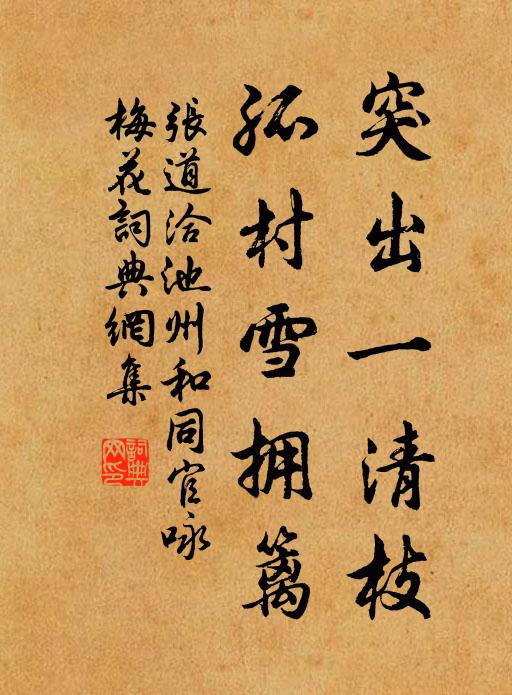 突出一清枝
孤村雪拥篱
張道洽池州和同官咏
梅花詞典網集
詞典
网印